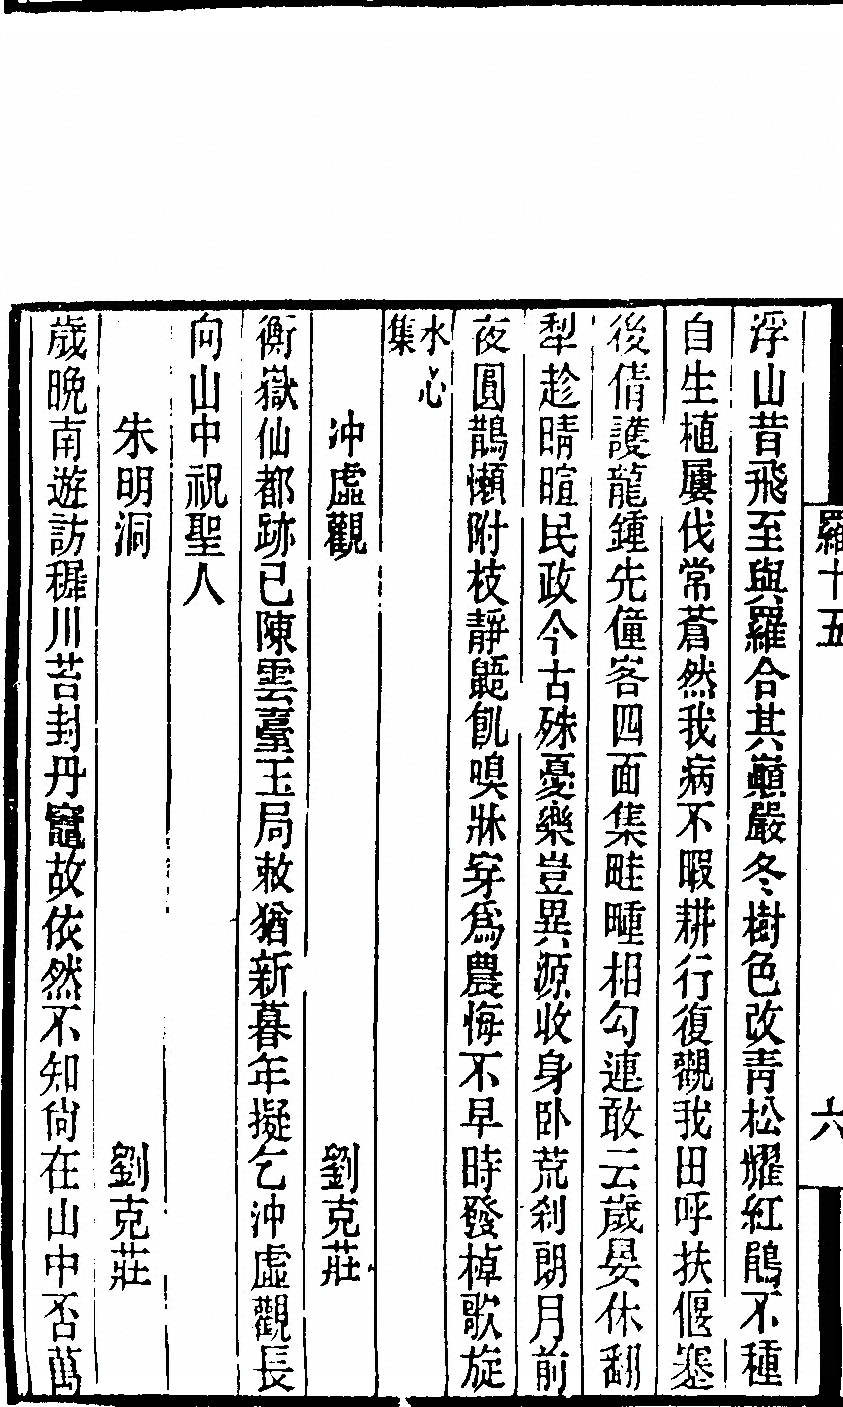 羅十五
六
浮山昔飛至與羅合其巔嚴冬樹色改靑松耀紅鵑不種
自生植屢伐常蒼然我病不暇耕行復觀我田呼扶偃蹇
後倩護龍鍾先僮客四面集畦畽相勾連敢云歲晏休翻
犁趁晴暄民政今古殊憂樂豈異源收身卧荒刹朗月前
夜圓鵲懶附枝靜鼯飢嗅牀穿爲農悔不早時發棹歌旋
水心
集
沖虛觀 劉克莊
衡嶽仙都跡已陳雲臺玉局敕猶新暮年擬乞沖虛觀長
向山中祝聖人
朱明洞 劉克莊
歲晚南遊訪稚川苔封丹竈故依然不知尙在山中否萬